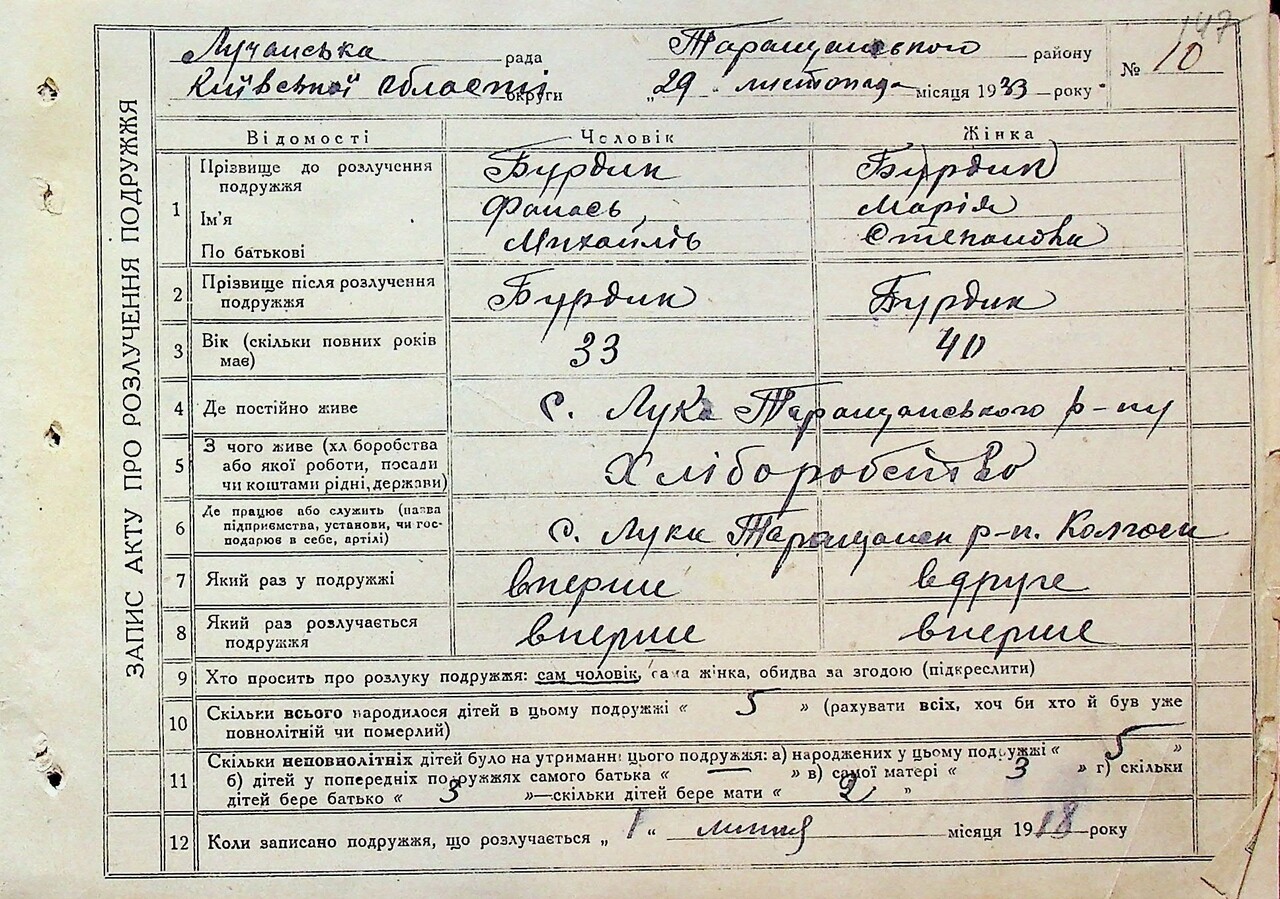 147
ЗАПИС АКТУ ПРО РОЗЛУЧЕННЯ ПОДРУЖЖЯ
Лучанська рада Таращанського району № 10
Київської області округи „29 листопада місяця 1933 року
Відомості Чоловік Жінка
1 Прізвище до розлучення подружжя Бурдик Бурдик
Ім'я Фанась Марія
По батькові Михайлів Степанова
2 Прізвище після розлучення подружжя Бурдик Бурдик
3 Вік (скільки повних років має) 33 40
4 Де постійно живе с. Лука Таращанського р-ну
5 З чого живе (хл боробства
або якої роботи, посади
чи коштами рідні, держави) Хліборобство
6 Де працює або служить (назва
підприємства, установи, чи гос-
подарює в себе, артілі) с. Лука Таращан р-н. Колгосп
7 Який раз у подружжі вперше вдруге
8 Який раз розлучається подружжя вперше вперше
9 Хто просить про розлуку подружжя: сам чоловік, сама жінка, обидва за згодою (підкреслити)
10 Скільки всього народилося дітей в цьому подружжі « 5 » (рахувати всіх, хоч би хто й був уже
повнолітній чи померлий)
11 Скільки неповнолітніх дітей було на утриманні цього подружжя: а) народжених у цьому подружжі « 5 »
б) дітей у попередніх подружжях самого батька « — » в) самої матері « 3 » г) скільки
дітей бере батько « 3 »—скільки дітей бере мати « 2 »
12 Коли записано подружжя, що розлучається „ 1 “ липня місяця 1918 року